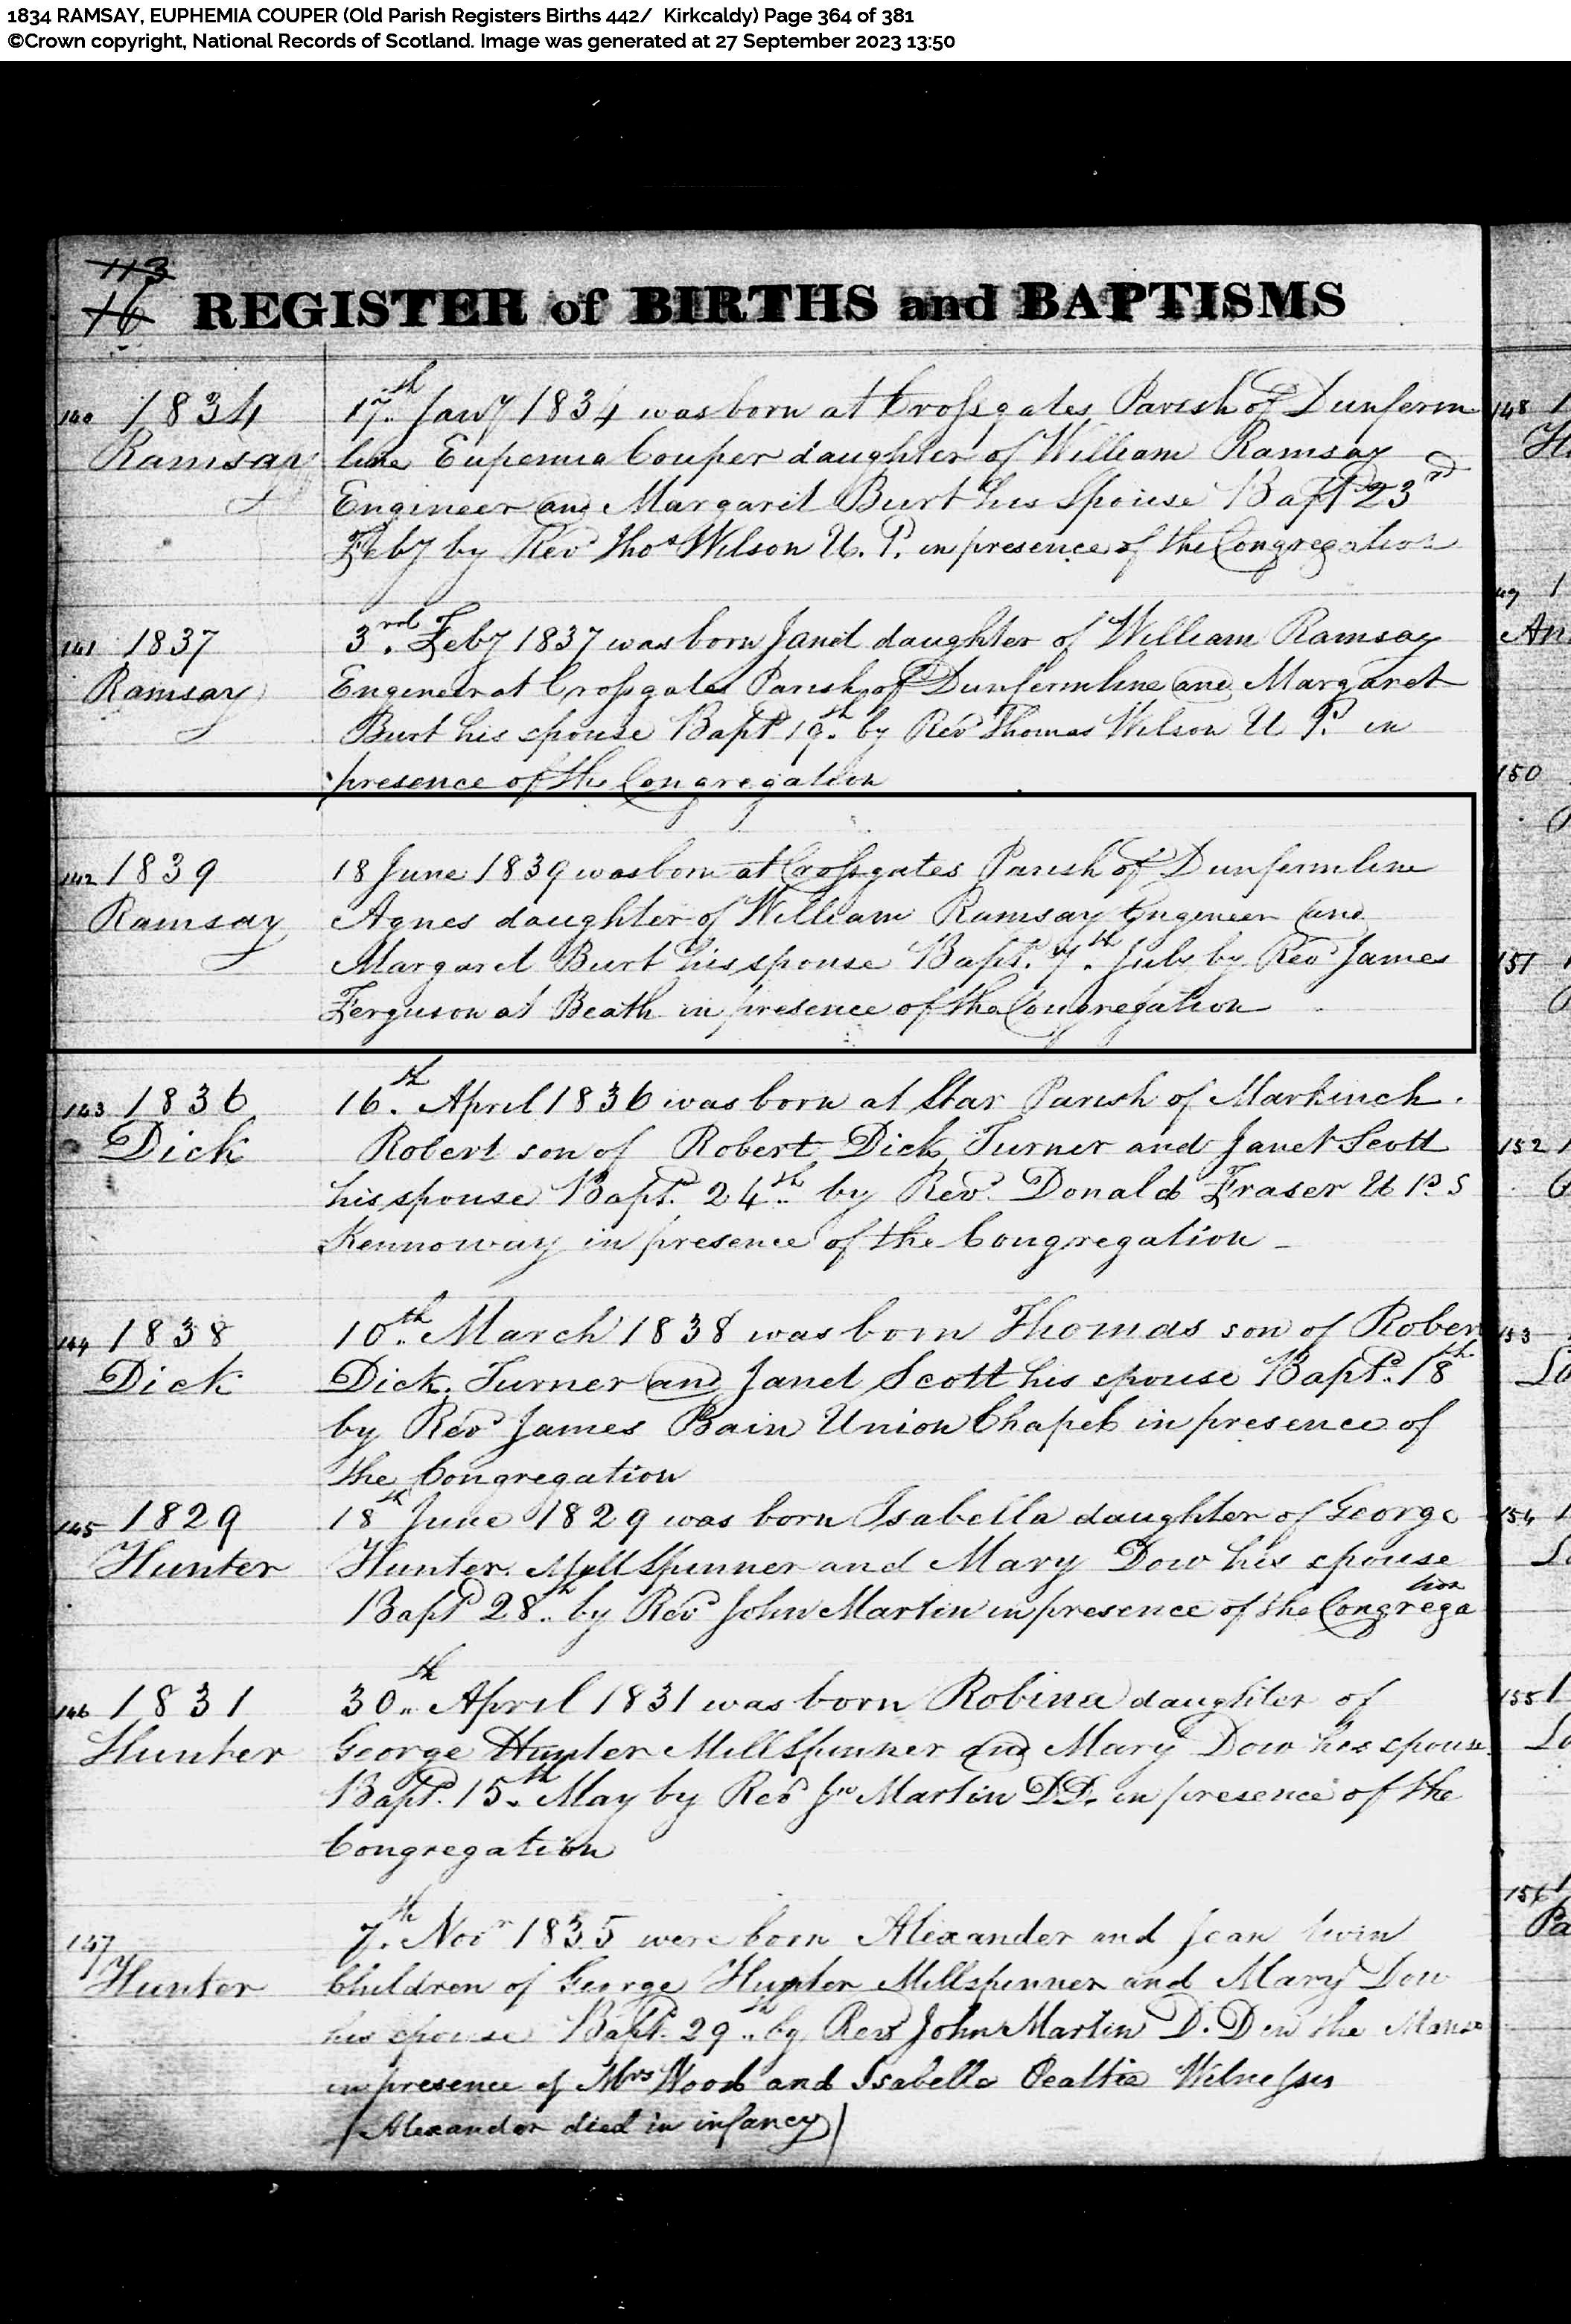 1834 RAMSAY, EUPHEMIA COUPER (Old Parish Registers Births 442/ Kirkcaldy) Page 364 of 381
©Crown copyright, National Records of Scotland. Image was generated at 27 September 2023 13:50
113
16
REGISTER of BIRTHS and BAPTISMS
140 1834
Ramsay
17th Jany 1834 was born at Crossgates Parish of Dunferm
line Eupemia Couper daughter of William Ramsay
Engineer and Margaret Burt his Spouse Bapd 23rd
Feby by Revd Thos Wilson U. P. in presence of the Congregation
141 1837
Ramsay
3rd Feby 1837 was born Janet daughter of William Ramsay
Engineer at Crossgates Parish of Dunfermline and Margaret
Burt his spouse Bapd 19th by Revd Thomas Wilson U P. in
presence of the Congregation
142 1839
Ramsay
18 June 1839 was born at Crossgates Parish of Dunfermline
Agnes daughter of William Ramsay Engineer and
Margaret Burt his spouse Bapt. 7th July by Revd James
Ferguson at Beath in presence of the Congregation
143 1836
Dick
16th April 1836 was born at Star Parish of Markinch.
Robert son of Robert Dick, Turner and Janet Scott
his spouse Bapt. 24th by Revd. Donald Fraser
Kennoway in presence of the Congregation
144 1838
Dick
10th March 1838 was born Thomas son of Rober
Dick. Turner and Janet Scott his spouse Bapd. 18th
by Revd James Bain Union Chapel in presence of
the Congregation
145 1829
Hunter
18th June 1829 was born Isabella daughter of George
Hunter. Mill Spinner and Mary Dow his spouse
Bapd 28th by Revd John Martin in presence of the Congrega
tion
146 1831
Hunter
30th April 1831 was born Robina daughter of
George Hunter Mill Spinner and Mary Dow his spouse
Bapd. 15th May by Revd Jno Martin D.D. in presence of the
Congregation
147
Hunter
7th Novr 1835 were born Alexander and Jean twin
Children of George Hunter Millspinner and Mary Dow
his spouse Bapt. 29th by Revd John Martin D.D in the Manse
in presence of Mrs Wood and Isabella Beattie Witnesses
(Alexander died in infancy)
148
149
An
150
151
152
153
154
155
156
Pa